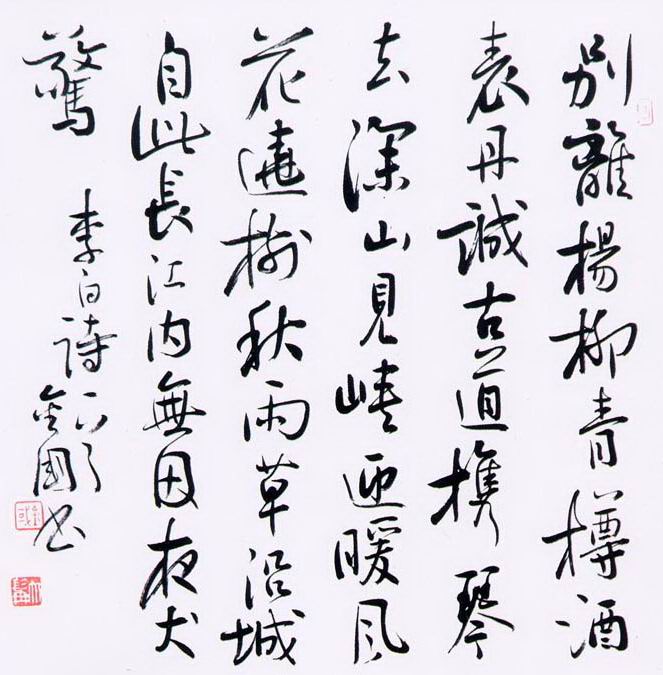 別離楊柳青樽酒
表丹誠古道携琴
去深山見峽迎暖風
花遶樹秋雨草沿城
自此長江内無因夜犬
驚
李白詩
金國书